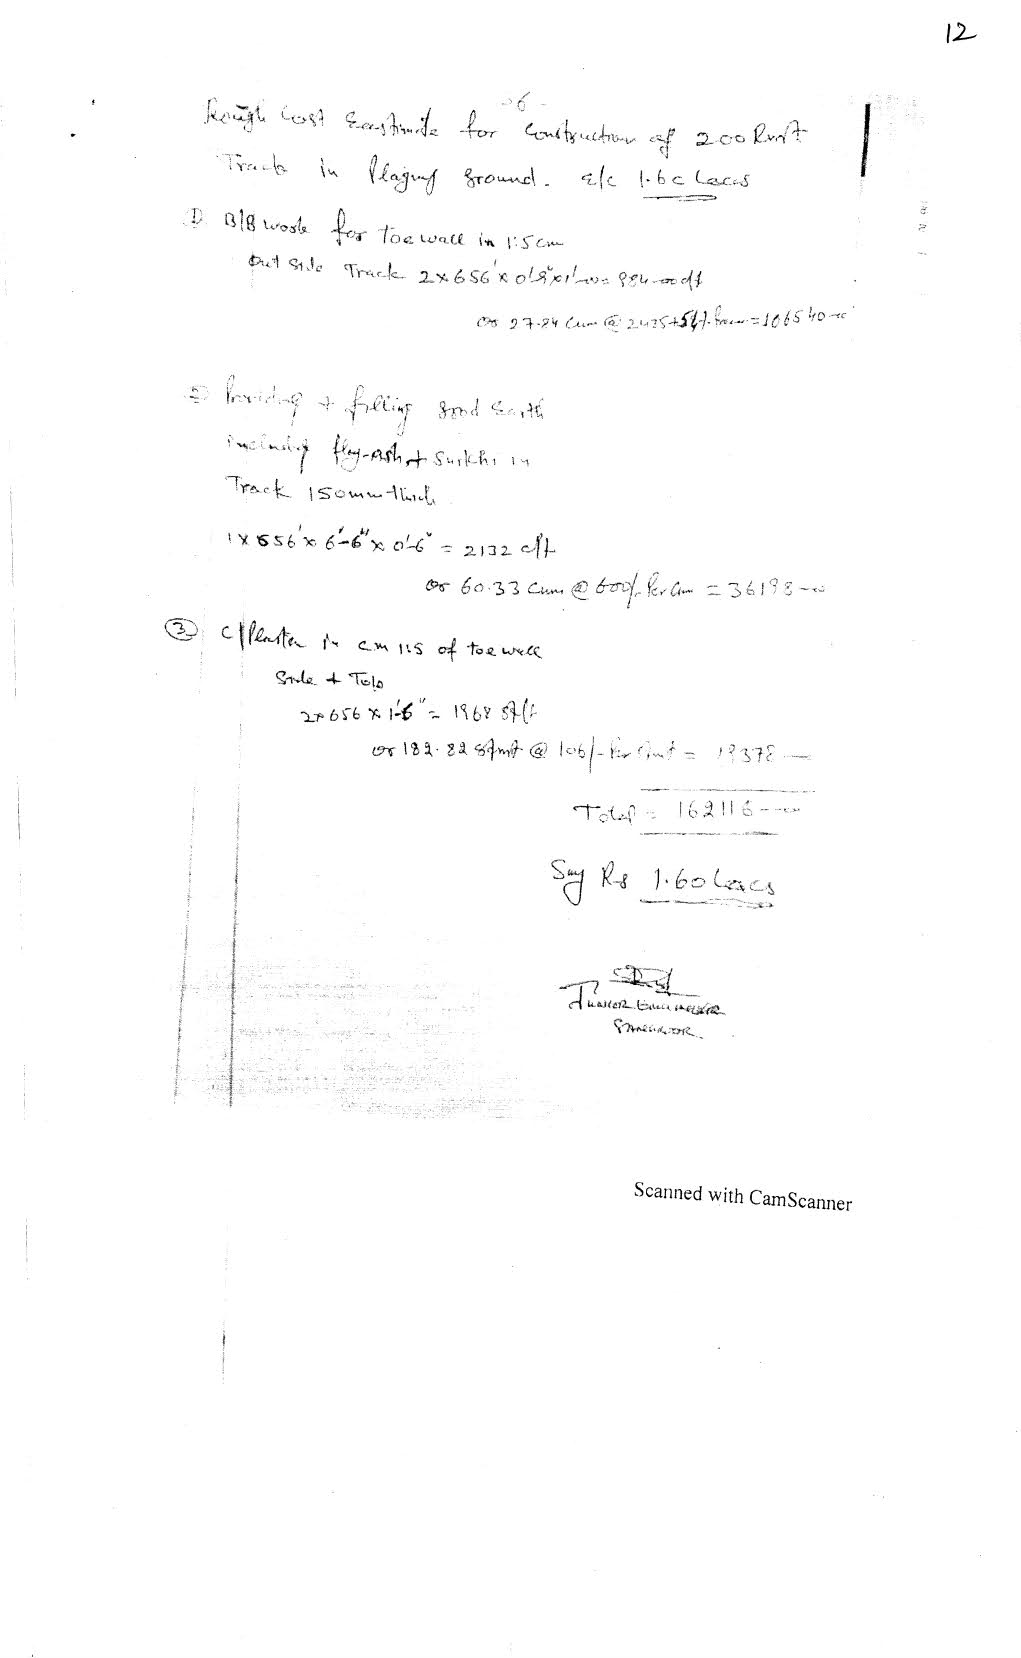 12
-6-
Rough Cost Eeastimate for Construction of 200 Rmt
Track in Playing Ground. e/c 1.60 Lacs
1) B/B work for toe wall in 1:5 cm
Out Side Track 2x656'x0'9"x1'-0" = 984-00 cft
or 27.84 Cum @ 2485+54%. = 106540-00
2) Providing + filling good Earth
including fly-Ash + Surkhi in
Track 150mm thick
1 x 656' x 6'-6" x 0'-6" = 2132 cft
or 60.33 Cum @ 600/- Per Cum = 36198-00
3 C/Plaster in cm 1:5 of toe wall
Side + Top
2x656 x 1'-6" = 1968 Sft
or 182.82 Sqmt @ 106/- Per Smt = 19378—
Total = 162116-00
Say Rs 1.60 Lacs
SD/-
JUNIOR ENGINEER
Scanned with CamScanner